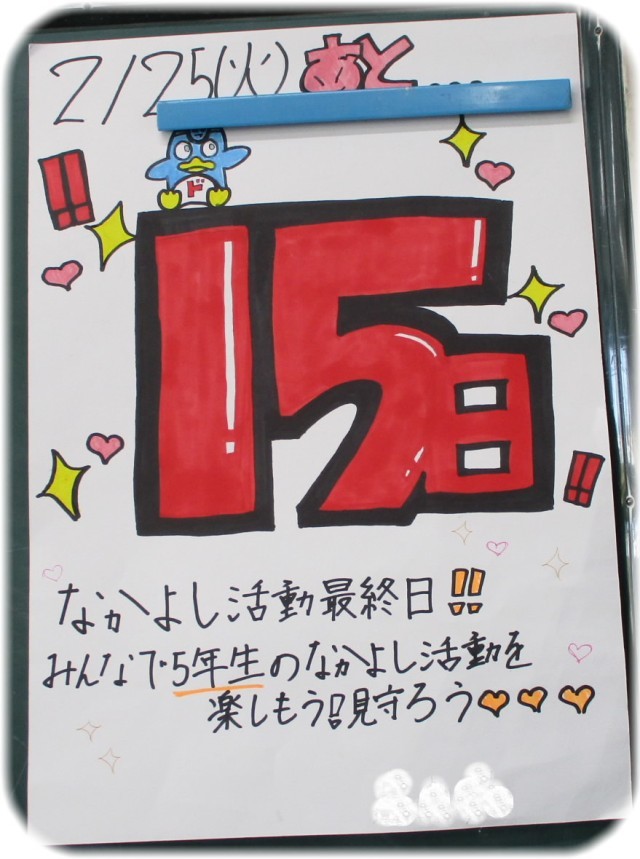 2/25(火)あと...
ド
!!
15日
!!
なかよし活動最終日!!
みんなで5年生のなかよし活動を
楽しもう!見守ろう